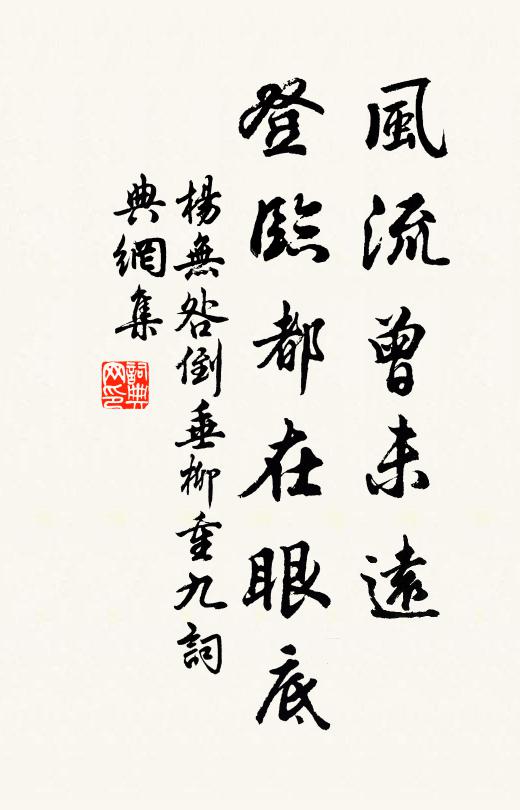 風流曾未遠
登臨都在眼底
楊無咎倒垂柳重九詞
典網集
詞典网印